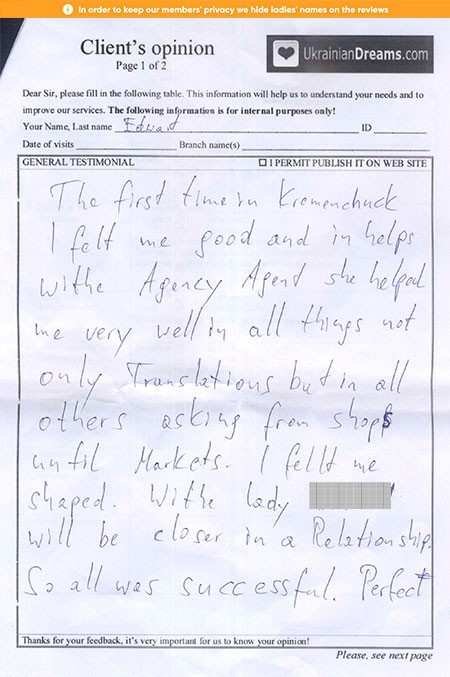 In order to keep our members' privacy we hide ladies' names on the reviews
Client's opinion
Page 1 of 2
UkrainianDreams.com
Dear Sir, please fill in the following table. This information will help us to understand your needs and to
improve our services. The following information is for internal purposes only!
Your Name, Last name Edward ID
Date of visits Branch name(s)
GENERAL TESTIMONIAL I PERMIT PUBLISH IT ON WEB SITE
The first time in Kremenchuck
I felt me good and in helps
withe Agency Agent she helped
me very well in all things not
only Translations but in all
others asking from shops
until Markets. I fellt me
shaped. Withe lady
will be closer in a Relationship.
So all was successful. Perfect
Thanks for your feedback, it's very important for us to know your opinion!
Please, see next page